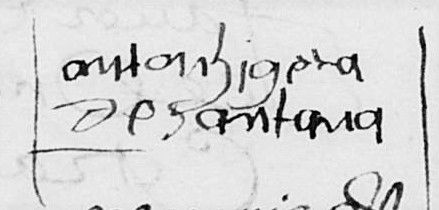 anton higera
de santana